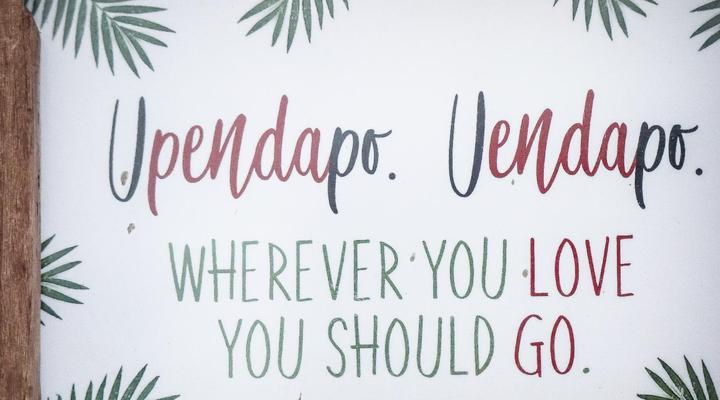 Upendapo. Uendapo.
WHEREVER YOU LOVE
YOU SHOULD GO.